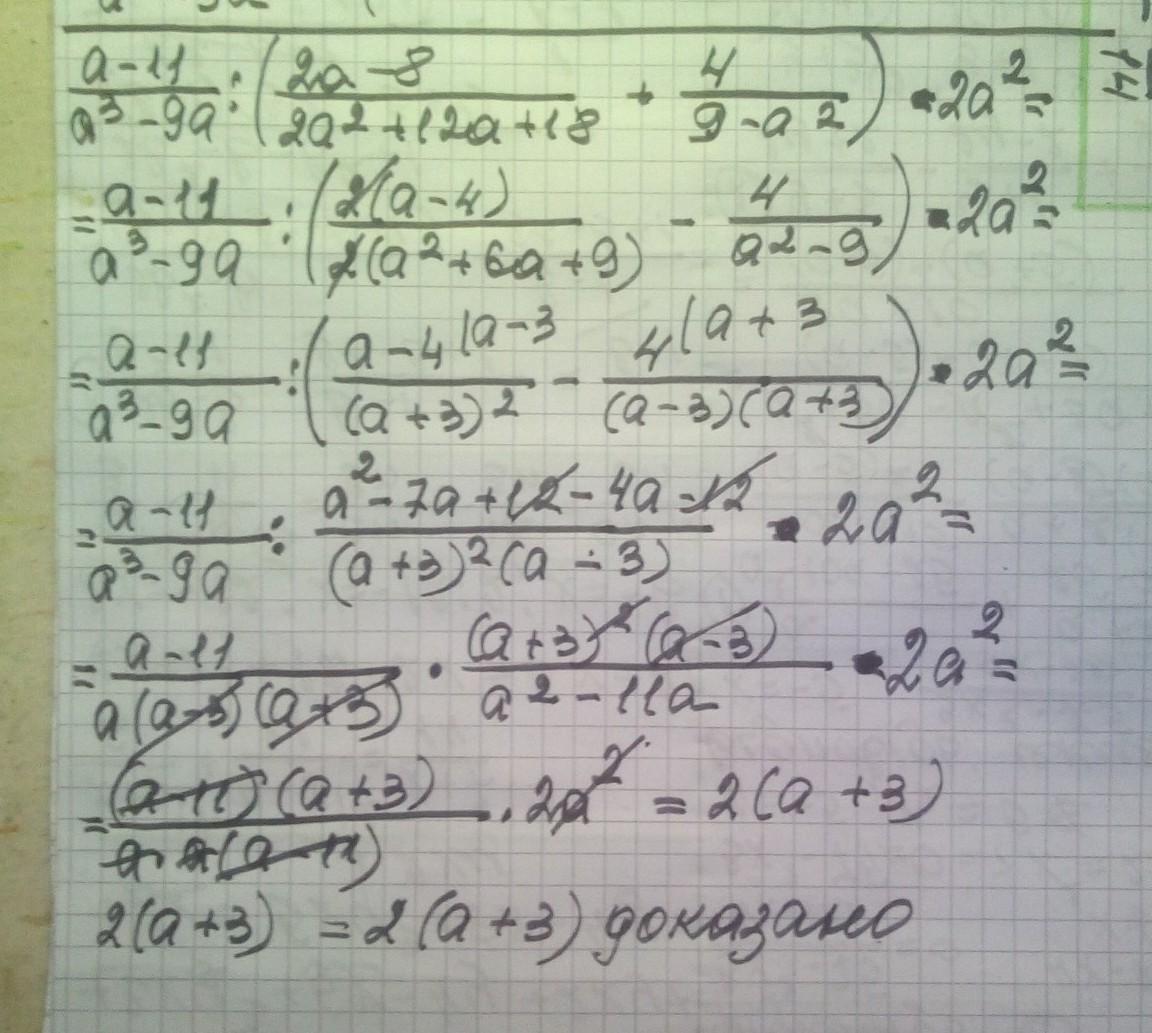 (a-11)/(a³-9a) : ((2a-8)/(2a²+12a+18) + 4/(9-a²)) · 2a² =
= (a-11)/(a³-9a) : (2(a-4)/2(a²+6a+9) - 4/(a²-9)) · 2a² =
= (a-11)/(a³-9a) : (a-4 (a-3/(a+3)² - 4 (a+3/(a-3)(a+3)) · 2a² =
= (a-11)/(a³-9a) : (a²-7a+12-4a-12)/(a+3)²(a-3) · 2a² =
= (a-11)/a(a-3)(a+3) · (a+3)²(a-3)/(a²-11a) · 2a² =
= (a-11)(a+3)/a·a(a-11) · 2a² = 2(a+3)
2(a+3) = 2(a+3) доказано